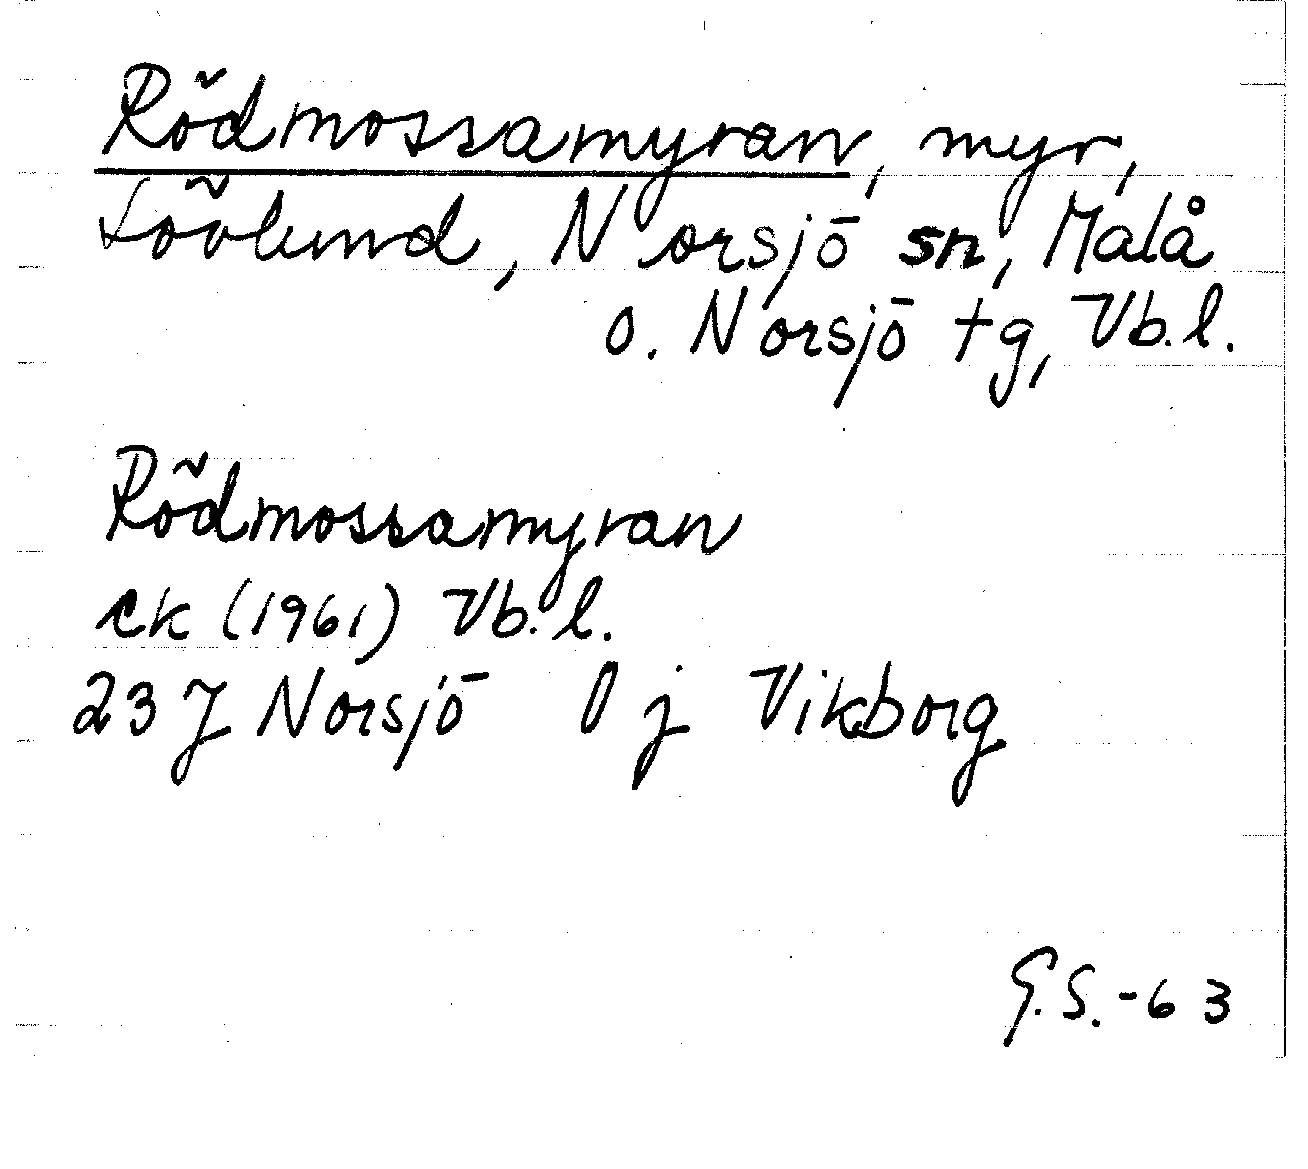 Rödmossamyran, myr,
Lövlund, Norsjö sn, Malå
o. Norsjö tg, Vb. l.
Rödmossamyran
ek (1961) Vb. l.
23 J Norsjö 0 j Vikborg
G.S.-63